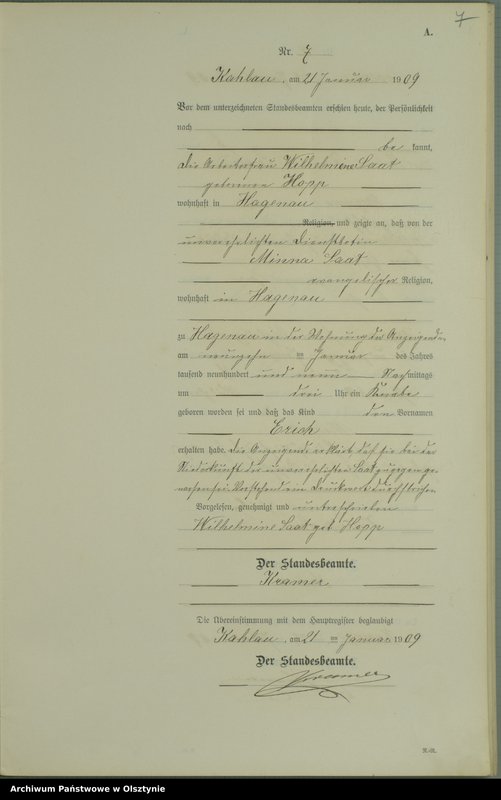 7
A.
Nr. 7
Kahlau, am 21 Januar 1909
Vor dem unterzeichneten Standesbeamten erschien heute, der Persönlichkeit
nach
be kannt,
die Arbeiterfrau Wilhelmine Saat
geborene Hopp
wohnhaft in Hagenau
Religion, und zeigte an, daß von der
unverehelichten Dienstbotin
Minna Saat
evangelischer Religion,
wohnhaft in Hagenau
zu Hagenau in der Wohnung der Anzeigenden
am neunzehn ten Januar des Jahres
tausend neunhundert und neun Nachmittags
um drei Uhr ein Knabe
geboren worden sei und daß das Kind den Vornamen
Erich
erhalten habe. Die Anzeigende erklärt daß sie bei der
Niederkunft der unverehelichten Saat zugegen ge-
wesen sei. Vorstehend ein Druckwort durchstrichen.
Vorgelesen, genehmigt und unterschrieben
Wilhelmine Saat geb Hopp
Der Standesbeamte.
Kramer
Die Übereinstimmung mit dem Hauptregister beglaubigt
Kahlau, am 21 ten Januar 1909
Der Standesbeamte.
Kramer
Archiwum Państwowe w Olsztynie